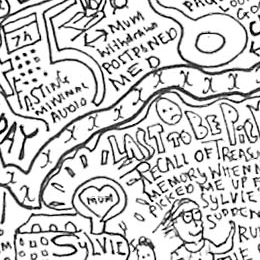 7A
MUM
Withdrawn
POSTPONED
MED
ASTING
MINIMAL
AUDIO
PAY
X X X X X X X X X
LAST TO BE PIC
RECALL OF TREASU
MEMORY WHEN
PICKED ME UP F
SYLVIE
SUDDEN
RU
MUM
SYLVIE